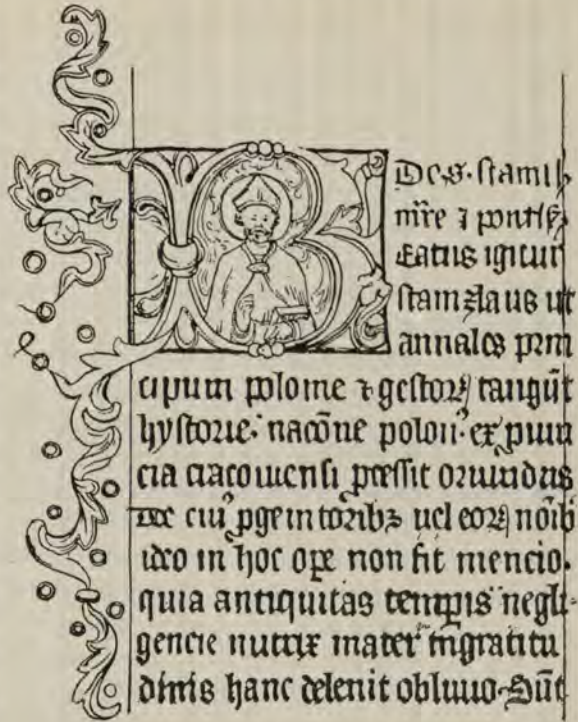 De s. stanisl
mr̃e ⁊ pontif
Eatus igitur
stanizlaus ut
annales prin
cipum polonie ⁊ gestoꝝ tangũt
hystorie. nacõne polon᷒ ex ꝓuin
cia cracouiensi ꝓcessit oriundus
De cui᷒ ꝓgenitoribꝫ uel eoꝝ noĩbꝫ
ideo in hoc oꝑe non fit mencio.
quia antiquitas temꝑis negli-
gencie nutrix mater ingratitu
dinis hanc deleuit obliuio. Sũt